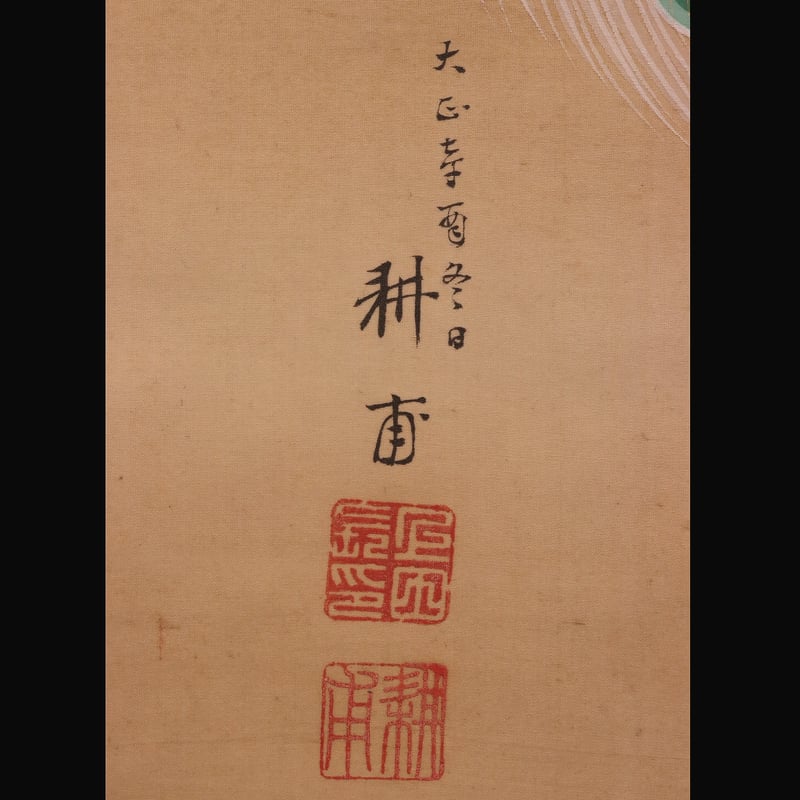 大正辛酉冬日
耕甫
耕甫